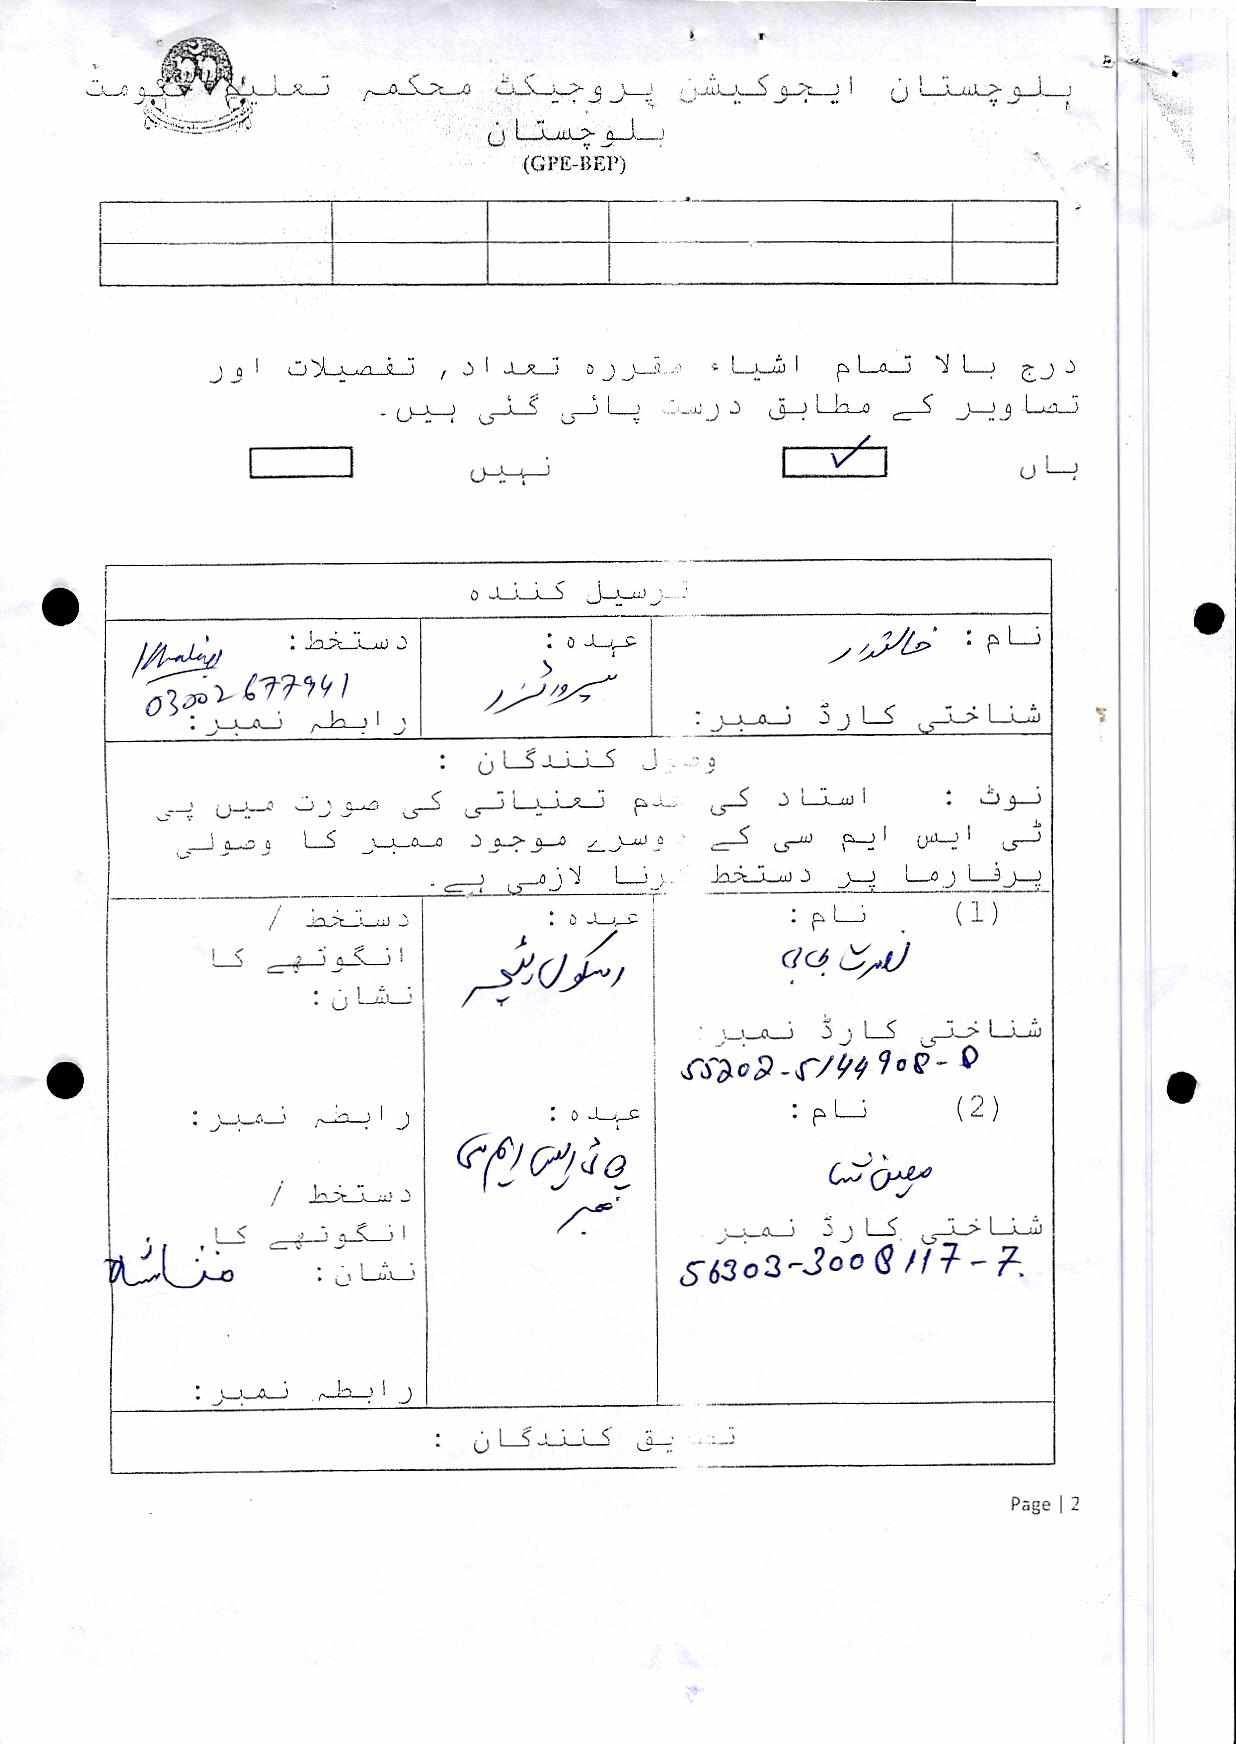 بلوچستان ایجوکیشن پروجیکٹ محکمہ تعلیم حکومت
بلوچستان
(GPE-BEP)
درج بالا تمام اشیاء مقررہ تعداد, تفصیلات اور
تصاویر کے مطابق درست پائی گئی ہیں۔
ہاں
نہیں
ترسیل کنندہ
نام :
عہدہ :
سپروائزر
دستخط :
03002677941
شناختی کارڈ نمبر:
رابطہ نمبر:
وصول کنندگان :
نوٹ : استاد کی عدم تعنیاتی کی صورت میں پی
ٹی ایس ایم سی کے دوسرے موجود ممبر کا وصولی
پرفارما پر دستخط کرنا لازمی ہے۔
(1) نام :
نصرت بی بی
عہدہ :
اسکول ٹیچر
دستخط /
انگوٹھے کا
نشان :
شناختی کارڈ نمبر:
55202-5144908-0
رابطہ نمبر:
(2) نام :
عہدہ :
پی ٹی ایس ایم سی
ممبر
دستخط /
انگوٹھے کا
نشان :
شناختی کارڈ نمبر
56303-3008117-7
رابطہ نمبر:
تصدیق کنندگان :
Page | 2